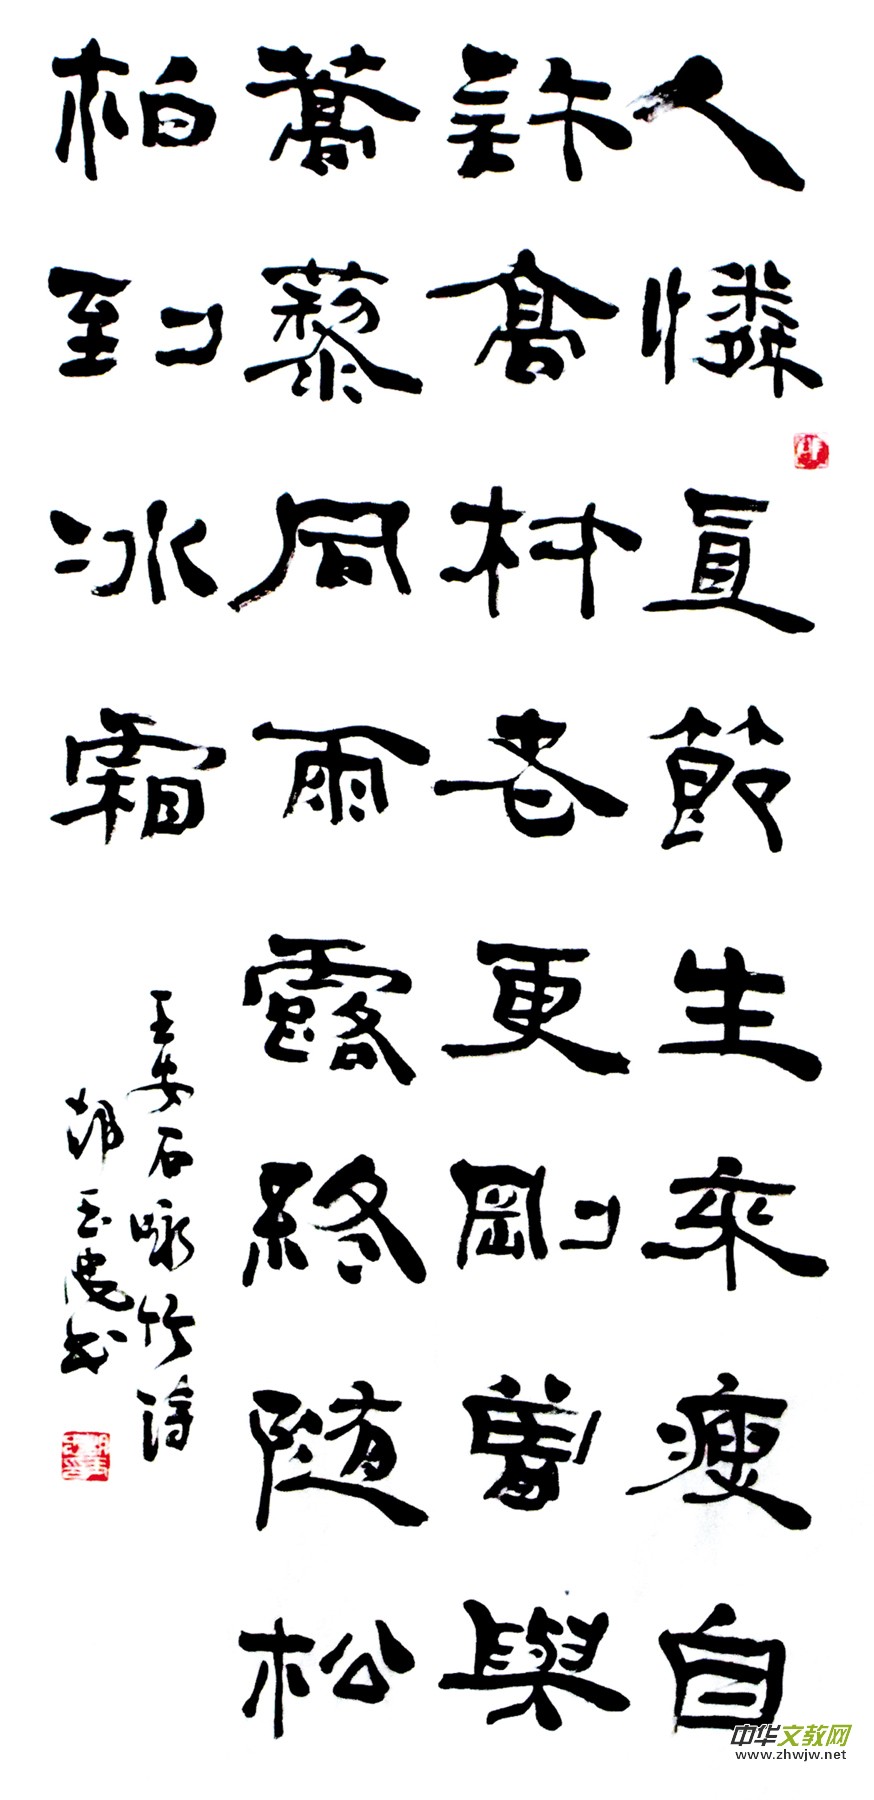 人憐直節生來瘦自
許高材老更剛曾與
蒿藜同雨露終隨松
柏到冰霜
王安石咏竹詩
胡玉虎书
中华文教网
www.zhwjw.net